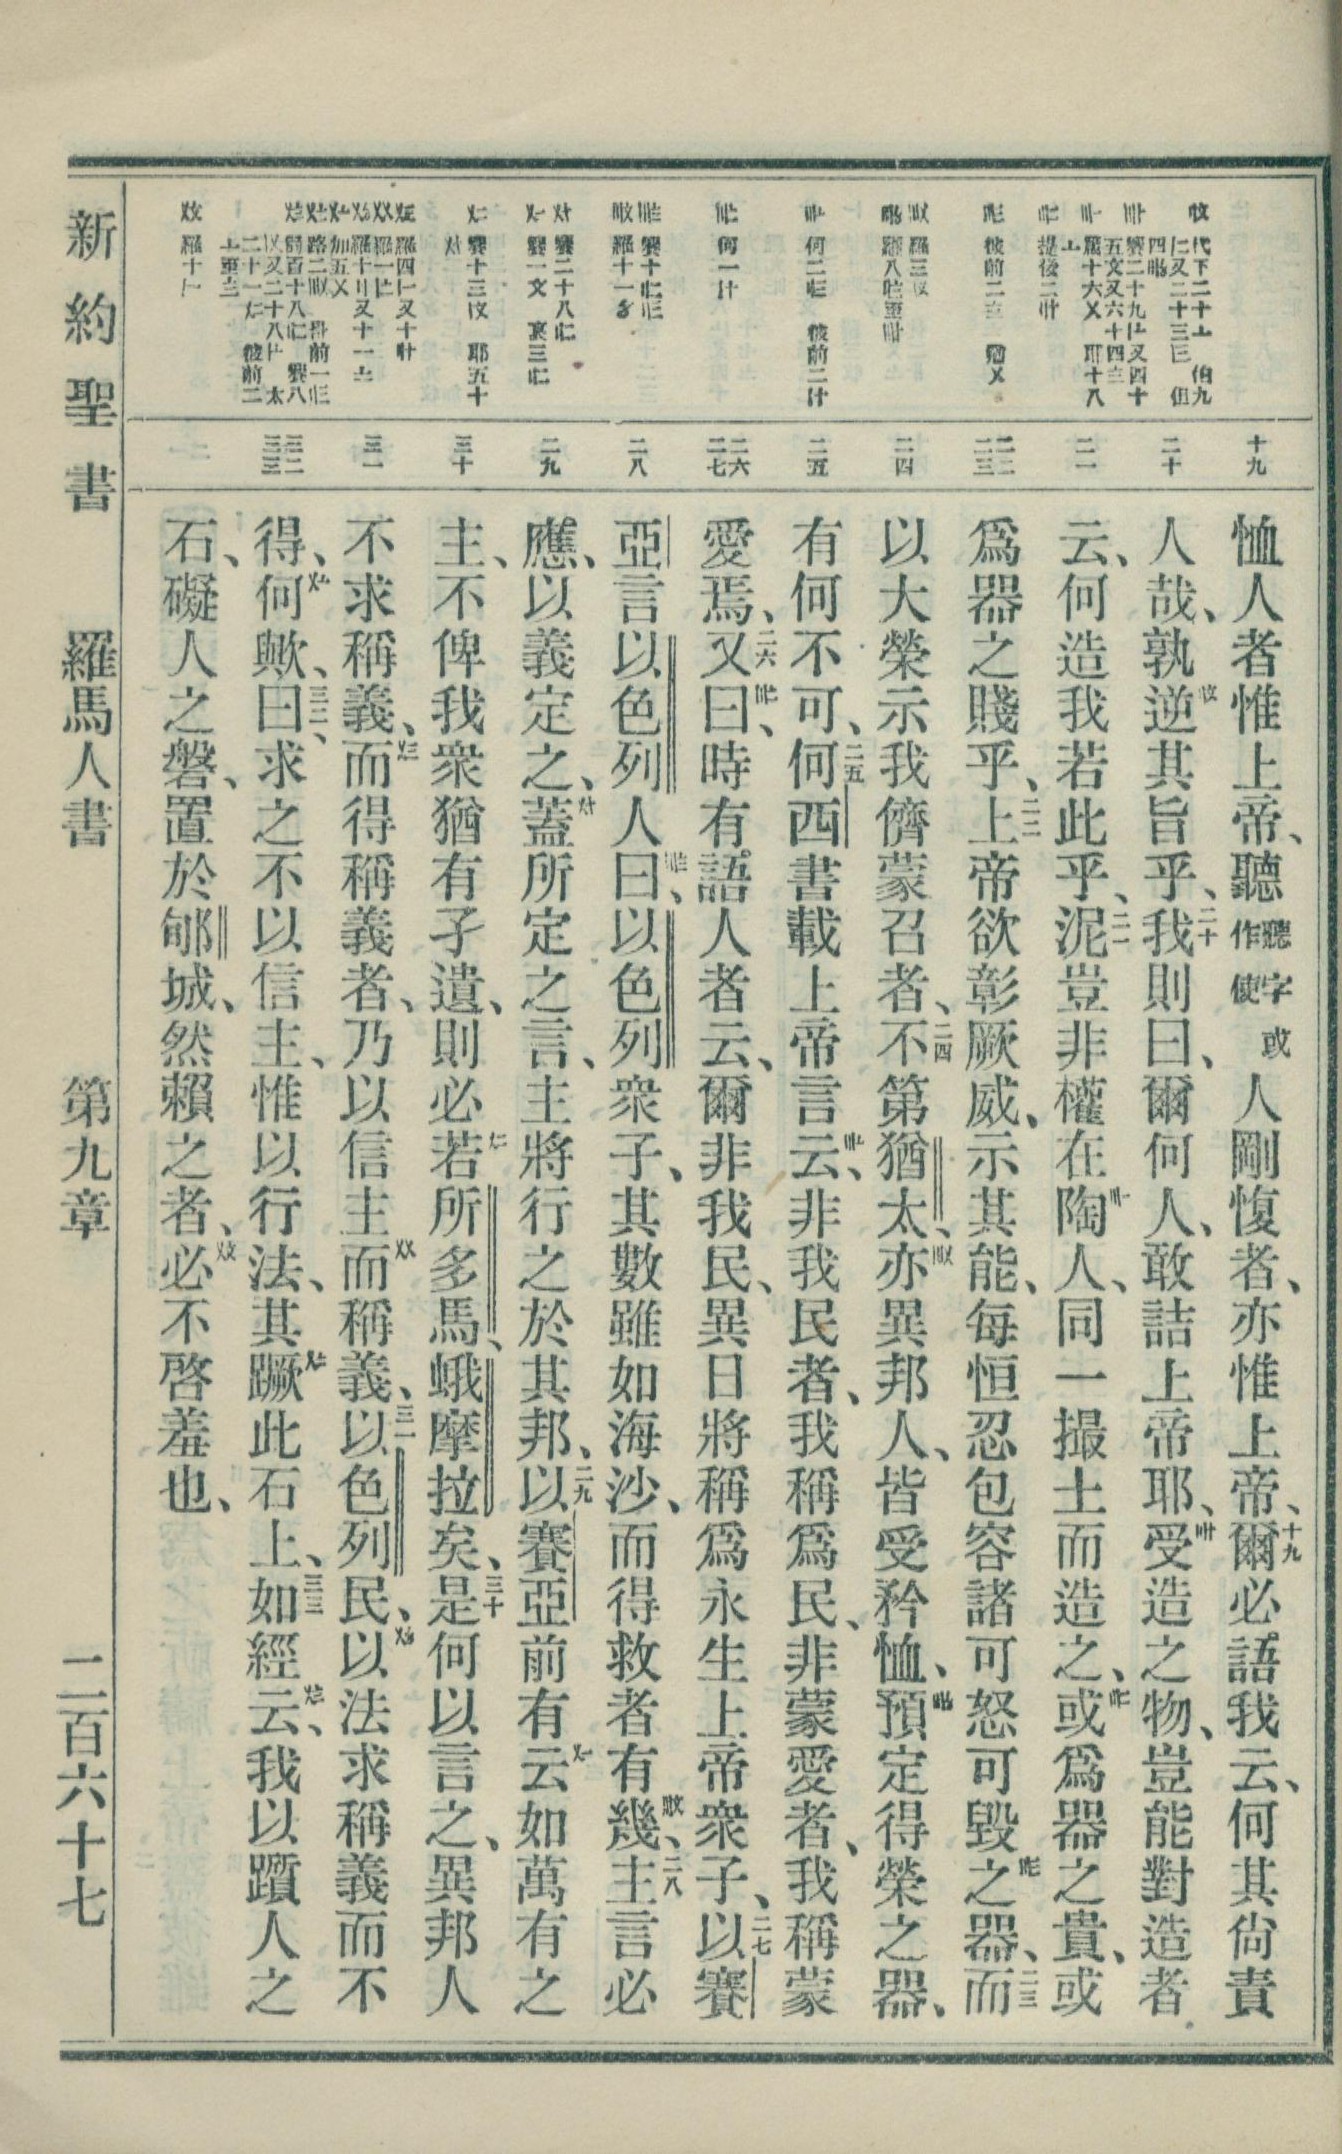 恤人者惟上帝、聽聽字或作使人剛愎者、亦惟上帝、十九爾必語我云、何其尙責
人哉、孰逆其旨乎、二十我則曰、爾何人、敢詰上帝耶、受造之物、豈能對造者
云、何造我若此乎、二一泥豈非權在陶人、同一撮土而造之、或爲器之貴、或
爲器之賤乎、二二上帝欲彰厥威、示其能、每恒忍包容諸可怒可毀之器、二三而
以大榮示我儕蒙召者、二四不第猶太、亦異邦人、皆受矜恤、預定得榮之器、
有何不可、二五何西書載上帝言云、非我民者、我稱爲民、非蒙愛者、我稱蒙
愛焉、二六又曰、時有語人者云、爾非我民、異日將稱爲永生上帝衆子、二七以賽
亞言以色列人曰、以色列衆子、其數雖如海沙、而得救者有幾、二八主言必
應、以義定之、蓋所定之言、主將行之於其邦、二九以賽亞前有云如萬有之
主、不俾我衆猶有孑遺、則必若所多馬、蛾摩拉矣、三十是何以言之、異邦人
不求稱義、而得稱義者、乃以信主而稱義、三一以色列民、以法求稱義而不
得、何歟、三二曰、求之不以信主、惟以行法、其蹶此石上、三三如經云、我以躓人之
石、礙人之磐、置於郇城、然賴之者、必不啓羞也、
新約聖書 羅馬人書 第九章 二百六十七
十九
二十
二一
二二
二三
二四
二五
二六
二七
二八
二九
三十
三一
三二
三三